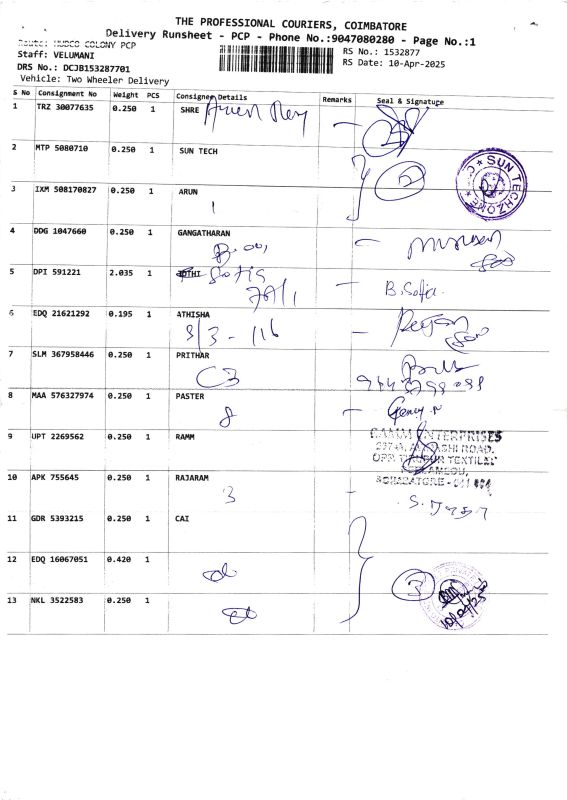 THE PROFESSIONAL COURIERS, COIMBATORE
Delivery Runsheet - PCP - Phone No.:9047080280 - Page No.:1
Route: HUDCO COLONY PCP
Staff: VELUMANI
RS No.: 1532877
DRS No.: DCJB153287701
RS Date: 10-Apr-2025
Vehicle: Two Wheeler Delivery
S No Consignment No Weight PCS Consignee Details Remarks Seal & Signature
1 TRZ 30077635 0.250 1 SHRE
2 MTP 5080710 0.250 1 SUN TECH
2
SUN TECHZONE
3 IXM 508170827 0.250 1 ARUN
4 DDG 1047660 0.250 1 GANGATHARAN
5 DPI 591221 2.035 1 Sofia
B.Sofia
6 EDQ 21621292 0.195 1 ATHISHA
3/3 - 116
7 SLM 367958446 0.250 1 PRITHAR
C3
8 MAA 576327974 0.250 1 PASTER
8
9 UPT 2269562 0.250 1 RAMM
ENTERPRISES
ROAD.
TEXTILE
10 APK 755645 0.250 1 RAJARAM
3
11 GDR 5393215 0.250 1 CAI
12 EDQ 16067051 0.420 1
3
13 NKL 3522583 0.250 1
10/04/25